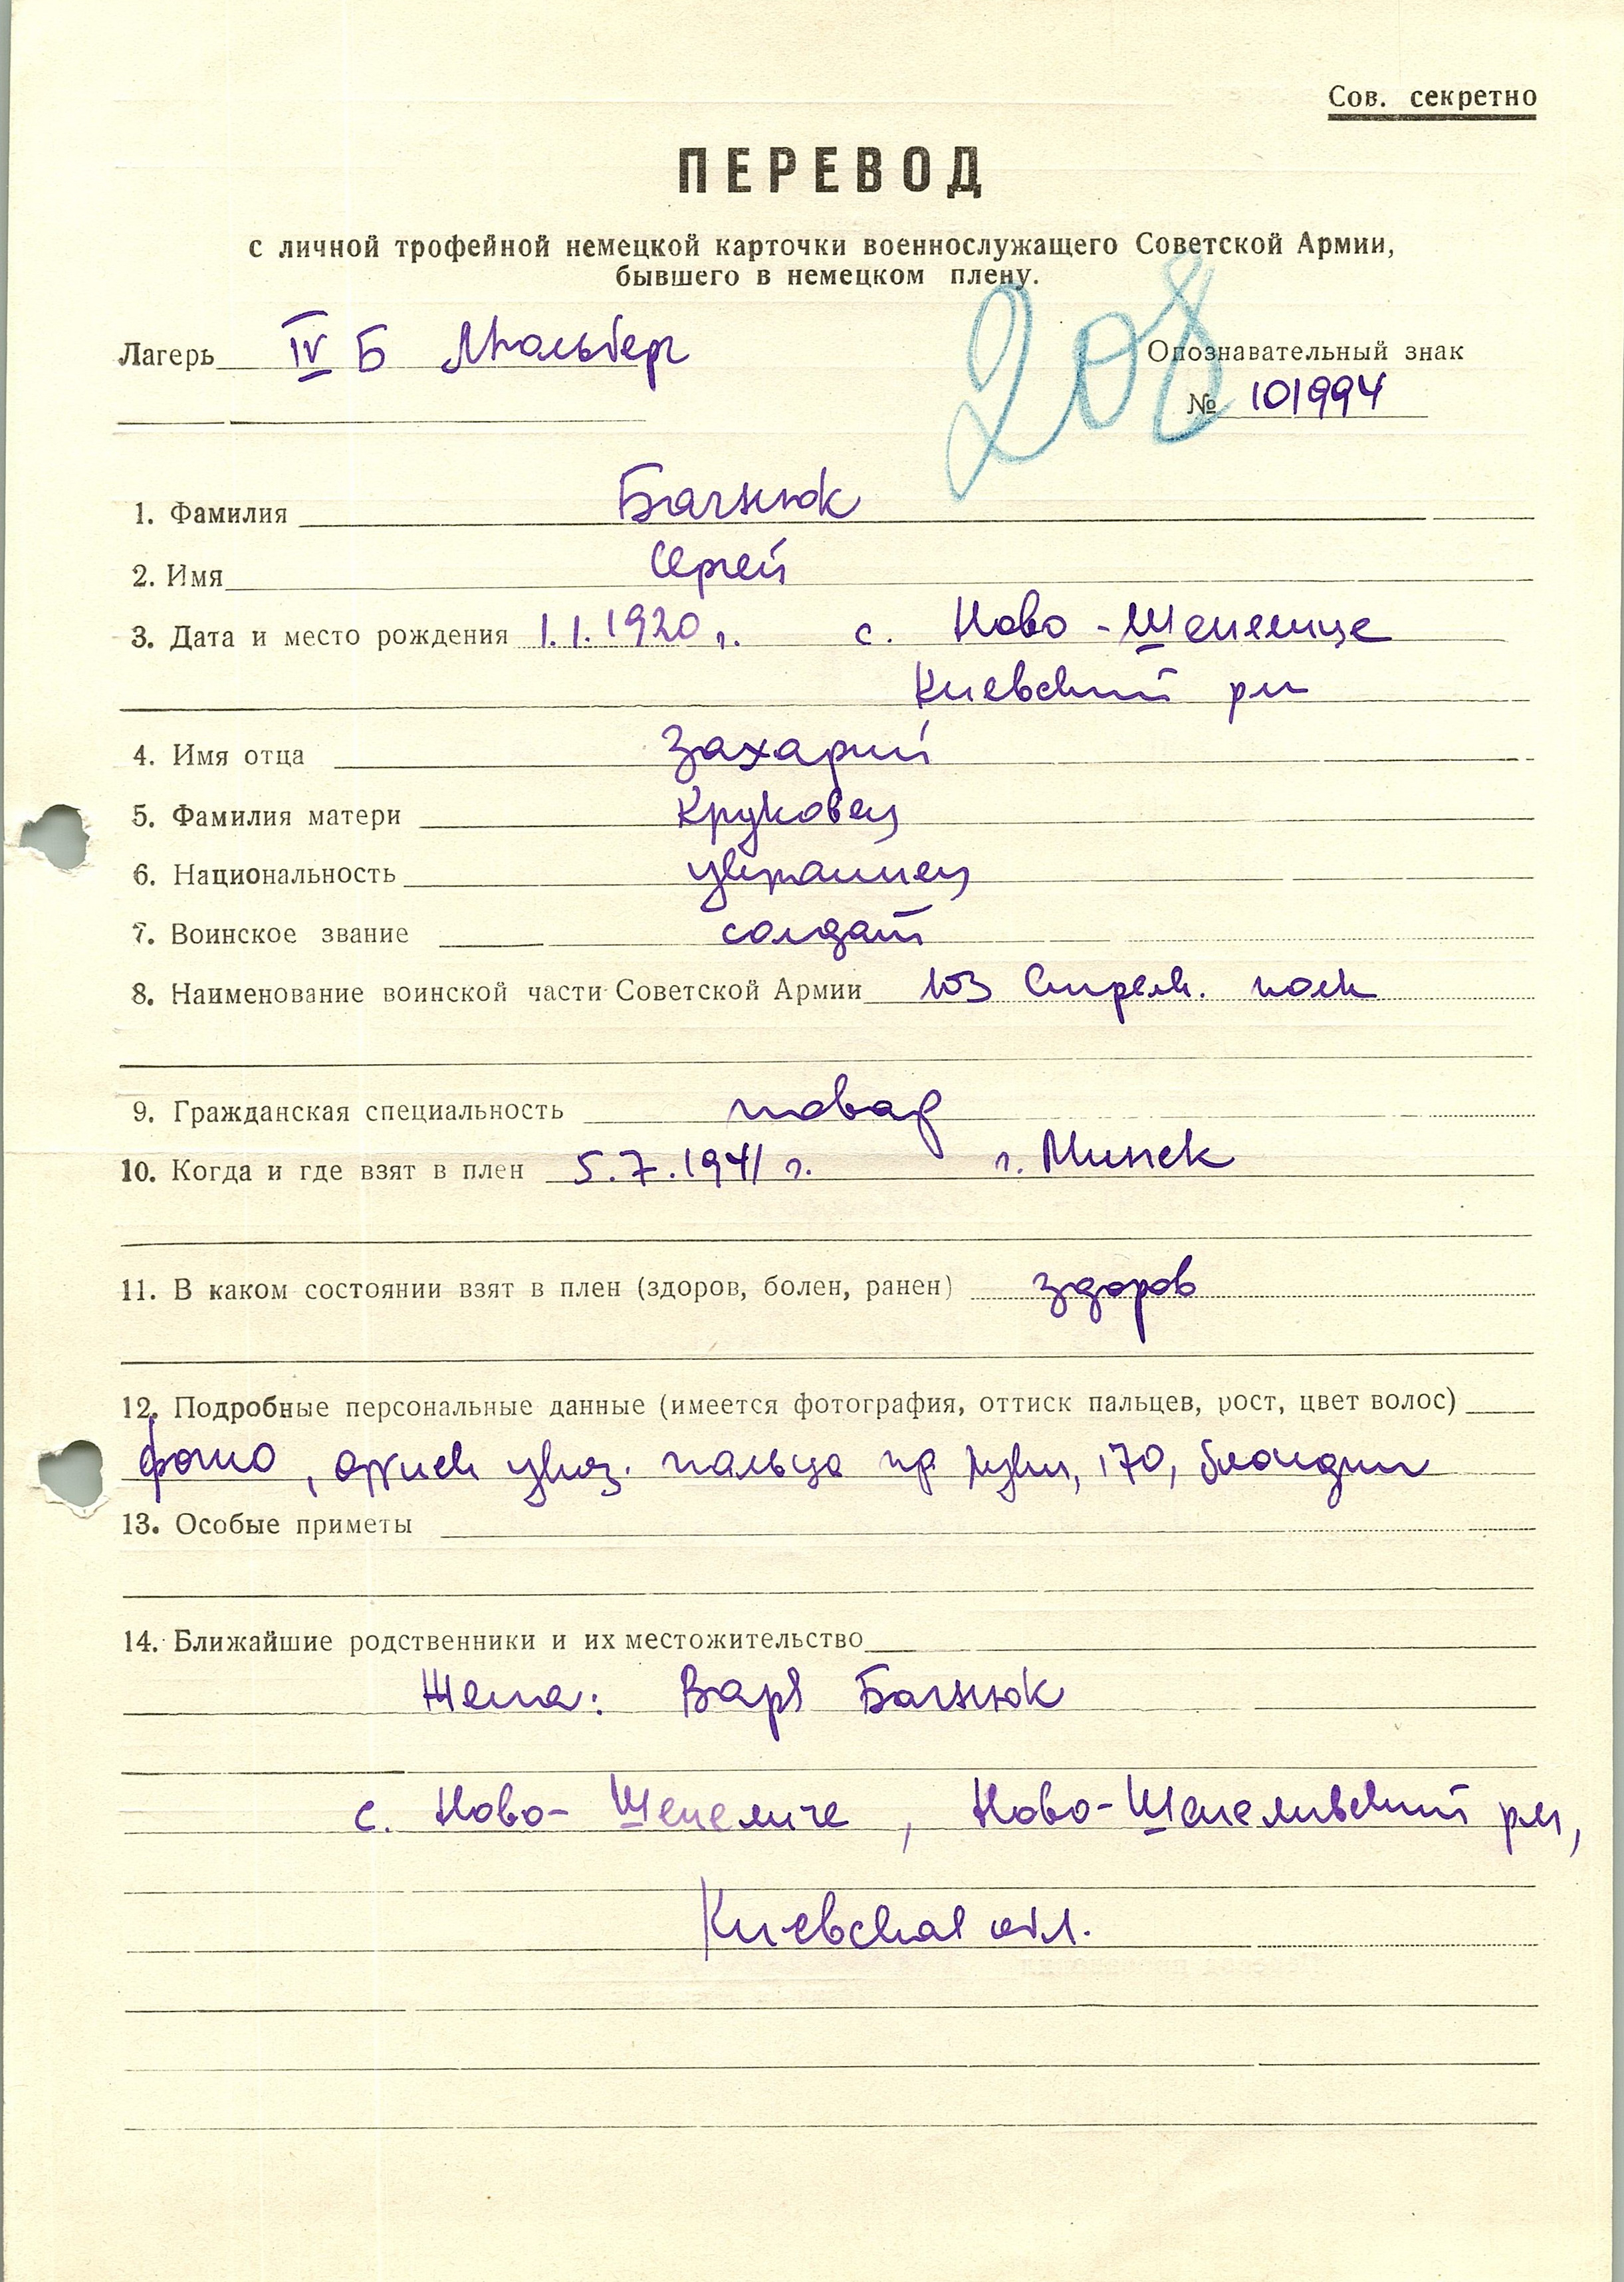 Сов. секретно
ПЕРЕВОД
с личной трофейной немецкой карточки военнослужащего Советской Армии,
бывшего в немецком плену.
208
Лагерь IV Б Мюльберг
Опознавательный знак
№ 101994
1. Фамилия Багнюк
2. Имя Сергей
3. Дата и место рождения 1.1.1920 г. с. Ново-Шепелице
Киевский рн
4. Имя отца Захарий
5. Фамилия матери Круковец
6. Национальность украинец
7. Воинское звание солдат
8. Наименование воинской части Советской Армии 103 Стрелк. полк
9. Гражданская специальность повар
10. Когда и где взят в плен 5.7.1941 г. г. Минск
11. В каком состоянии взят в плен (здоров, болен, ранен) здоров
12. Подробные персональные данные (имеется фотография, оттиск пальцев, рост, цвет волос)
фото, указ. пальца пр руки, 170, блондин
13. Особые приметы
14. Ближайшие родственники и их местожительство
Жена: Варя Багнюк
с. Ново-Шепеличе, Ново-Шепеливский рн,
Киевская обл.